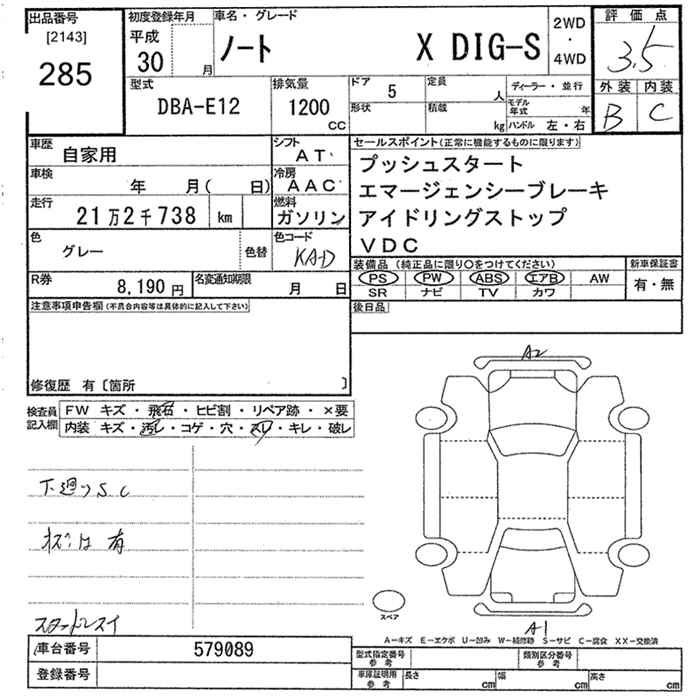 出品番号
[2143]
285
初度登録年月
平成
30 月
車名・グレード
ノート X DIG-S
2WD
・
4WD
評価点
3.5
外装 内装
B C
型式
DBA-E12
排気量
1200
CC
ドア 5
形状
定員 人
積載 kg
ディーラー・並行
モデル年式 年
ハンドル 左・右
車歴
自家用
シフト
AT
車検
年 月( 日)
冷房
AAC
走行
21万2千738 km
燃料
ガソリン
色
グレー
色替
色コード
KAD
R券
8,190円
名変通知期限
月 日
セールスポイント(正常に機能するものに限ります)
プッシュスタート
エマージェンシーブレーキ
アイドリングストップ
VDC
装備品(純正品に限り○をつけてください)
PS PW ABS エアB AW
SR ナビ TV カワ
新車保証書
有・無
後日品
注意事項申告欄(不具合内容等は具体的に記入して下さい)
修復歴 有〔箇所 〕
検査員
記入欄
FW キズ・飛石・ヒビ割・リペア跡・×要
内装 キズ・汚レ・コゲ・穴・スリ・キレ・破レ
下廻りS.C
スタットレスイ
A2
スペア
A1
A-キズ E-エクボ U-凹み W-補修跡 S-サビ C-腐食 XX-交換済
車台番号 579089
登録番号
型式指定番号
参考
類別区分番号
参考
車庫証明用
参考
長さ cm
幅 cm
高さ cm